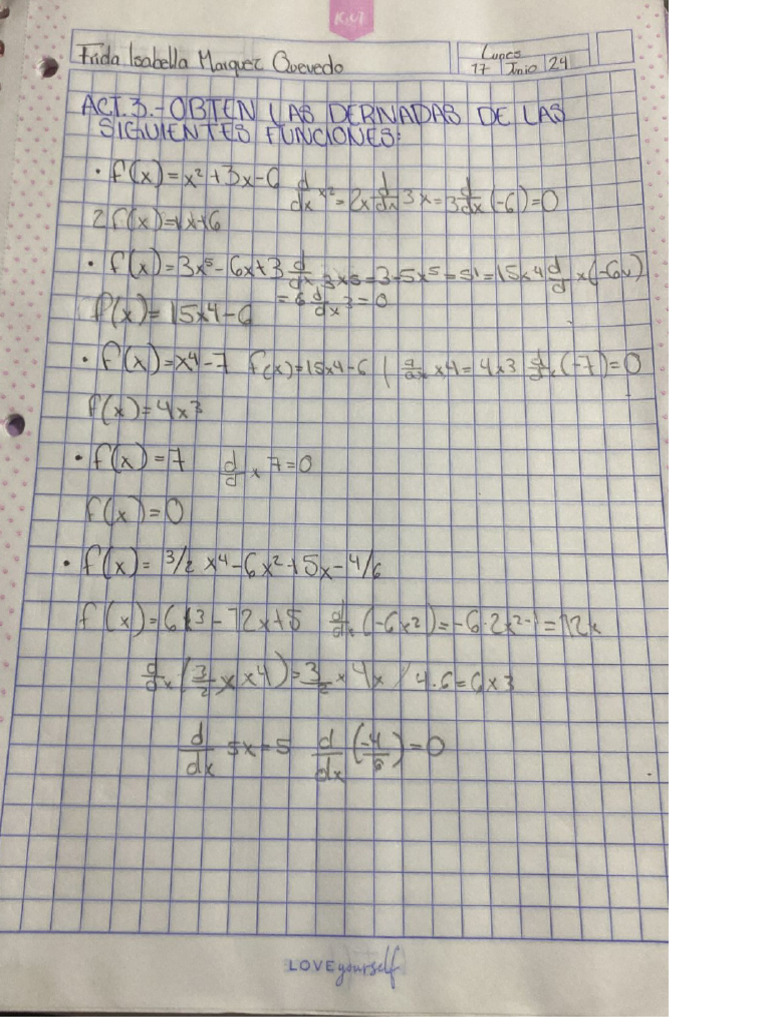 K.M
Frida Isabella Marquez Quevedo
Lunes
17 Jnio 24
ACT.3.-OBTEN LAS DERIVADAS DE LAS
SIGUIENTES FUNCIONES:
• f(x)=x²+3x-6 d/dx x²=2x d/dx 3x=3 d/dx (-6)=0
• f(x)=3x⁵-6x+3 d/dx 3x5=3-5x⁵-51=15x4 d/d x(-6x)
f(x)=15x4-6 =6 d/dx 3=0
• f(x)=x4-7 f(x)=15x4-6 ( d/dx x4=4x3 d/dx (-7)=0
f(x)=4x3
• f(x)=7 d/d x 7=0
f(x)=0
• f(x)= 3/2 x4-6x²+5x-4/6
f(x)=6x3-12x+5 d/dx (-6x2)=-6·2x²-1=12x
d/dx (3/2 x x4)=3/2 x 4x / 4.6=6x3
d/dx 5x=5 d/dx (-4/6)=0
LOVE yourself